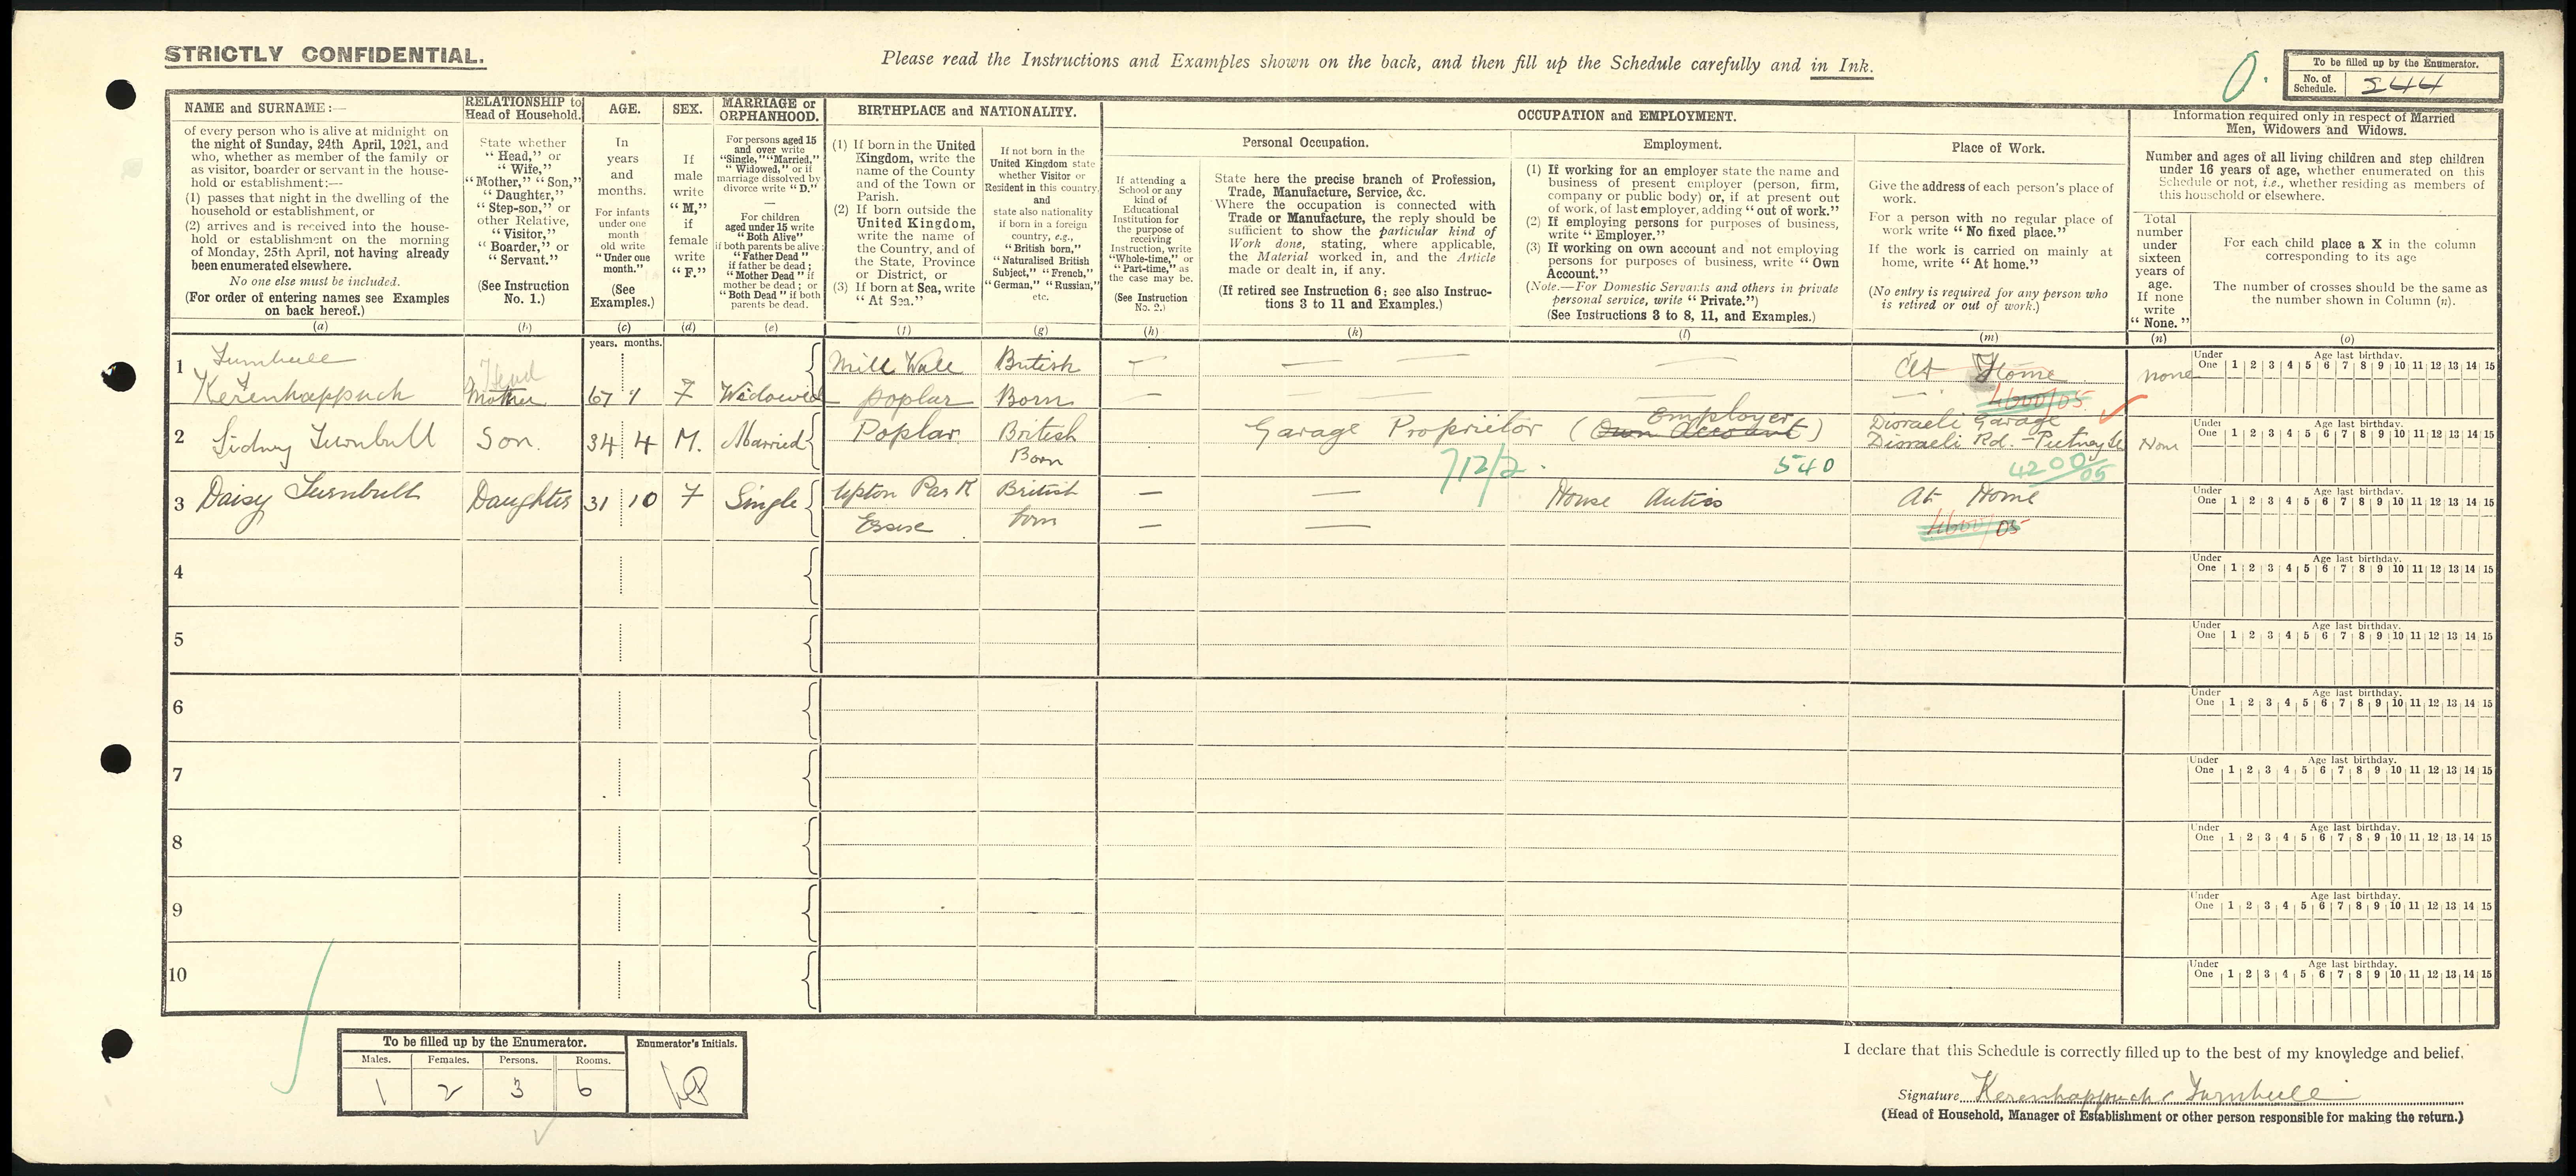 STRICTLY CONFIDENTIAL.
Please read the Instructions and Examples shown on the back, and then fill up the Schedule carefully and in Ink.
0.
To be filled up by the Enumerator.
No. of Schedule. 244
NAME and SURNAME:—
of every person who is alive at midnight on
the night of Sunday, 24th April, 1921, and
who, whether as member of the family or
as visitor, boarder or servant in the house-
hold or establishment:—
(1) passes that night in the dwelling of the
household or establishment, or
(2) arrives and is received into the house-
hold or establishment on the morning
of Monday, 25th April, not having already
been enumerated elsewhere.
No one else must be included.
(For order of entering names see Examples
on back hereof.)
(a)
RELATIONSHIP to
Head of Household.
State whether
"Head," or
"Wife,"
"Mother," "Son,"
"Daughter,"
"Step-son," or
other Relative,
"Visitor,"
"Boarder," or
"Servant."
(See Instruction
No. 1.)
(b)
AGE.
In
years
and
months.
For infants
under one
month
old write
"Under one
month."
(See
Examples.)
(c)
SEX.
If
male
write
"M,"
if
female
write
"F."
(d)
MARRIAGE or
ORPHANHOOD.
For persons aged 15
and over write
"Single," "Married,"
"Widowed," or if
marriage dissolved by
divorce write "D."
—
For children
aged under 15 write
"Both Alive"
if both parents be alive;
"Father Dead"
if father be dead;
"Mother Dead" if
mother be dead; or
"Both Dead" if both
parents be dead.
(e)
BIRTHPLACE and NATIONALITY.
(1) If born in the United
Kingdom, write the
name of the County
and of the Town or
Parish.
(2) If born outside the
United Kingdom,
write the name of
the Country, and of
the State, Province
or District, or
(3) If born at Sea, write
"At Sea."
(f)
If not born in the
United Kingdom state
whether Visitor or
Resident in this country,
and
state also nationality
if born in a foreign
country, e.g.,
"British born,"
"Naturalised British
Subject," "French,"
"German," "Russian,"
etc.
(g)
OCCUPATION and EMPLOYMENT.
If attending a
School or any
kind of
Educational
Institution for
the purpose of
receiving
Instruction, write
"Whole-time," or
"Part-time," as
the case may be.
(See Instruction
No. 2.)
(h)
Personal Occupation.
State here the precise branch of Profession,
Trade, Manufacture, Service, &c.
Where the occupation is connected with
Trade or Manufacture, the reply should be
sufficient to show the particular kind of
Work done, stating, where applicable,
the Material worked in, and the Article
made or dealt in, if any.
(If retired see Instruction 6; see also Instruc-
tions 3 to 11 and Examples.)
(k)
Employment.
(1) If working for an employer state the name and
business of present employer (person, firm,
company or public body) or, if at present out
of work, of last employer, adding "out of work."
(2) If employing persons for purposes of business,
write "Employer."
(3) If working on own account and not employing
persons for purposes of business, write "Own
Account."
(Note.—For Domestic Servants and others in private
personal service, write "Private.")
(See Instructions 3 to 8, 11, and Examples.)
(l)
Place of Work.
Give the address of each person's place of
work.
For a person with no regular place of
work write "No fixed place."
If the work is carried on mainly at
home, write "At home."
(No entry is required for any person who
is retired or out of work.)
(m)
Information required only in respect of Married
Men, Widowers and Widows.
Number and ages of all living children and step children
under 16 years of age, whether enumerated on this
Schedule or not, i.e., whether residing as members of
this household or elsewhere.
Total
number
under
sixteen
years of
age.
If none
write
"None."
(n)
For each child place a X in the column
corresponding to its age
The number of crosses should be the same as
the number shown in Column (n).
(o)
years. months.
1 Turnbull Head Mill Wall British — — — At Home none
Kerenhappuch Mother 67 1 F Widowed Poplar Born — — — 4600/05
Under One 1 2 3 4 5 6 7 8 9 10 11 12 13 14 15
Age last birthday.
2 Sidney Turnbull Son. 34 4 M. Married Poplar British Born Garage Proprietor (Own Account) Employer Disraeli Garage
Disraeli Rd. - Putney None
712/2. 540 4200/05
Under One 1 2 3 4 5 6 7 8 9 10 11 12 13 14 15
Age last birthday.
3 Daisy Turnbull Daughter 31 10 F Single Upton Park British — — House Duties At Home
Essex born — — 4600/05
Under One 1 2 3 4 5 6 7 8 9 10 11 12 13 14 15
Age last birthday.
4
Under One 1 2 3 4 5 6 7 8 9 10 11 12 13 14 15
Age last birthday.
5
Under One 1 2 3 4 5 6 7 8 9 10 11 12 13 14 15
Age last birthday.
6
Under One 1 2 3 4 5 6 7 8 9 10 11 12 13 14 15
Age last birthday.
7
Under One 1 2 3 4 5 6 7 8 9 10 11 12 13 14 15
Age last birthday.
8
Under One 1 2 3 4 5 6 7 8 9 10 11 12 13 14 15
Age last birthday.
9
Under One 1 2 3 4 5 6 7 8 9 10 11 12 13 14 15
Age last birthday.
10
Under One 1 2 3 4 5 6 7 8 9 10 11 12 13 14 15
Age last birthday.
To be filled up by the Enumerator.
Males. Females. Persons. Rooms.
1 2 3 6
Enumerator's Initials.
I declare that this Schedule is correctly filled up to the best of my knowledge and belief.
Signature Kerenhappuch Turnbull
(Head of Household, Manager of Establishment or other person responsible for making the return.)